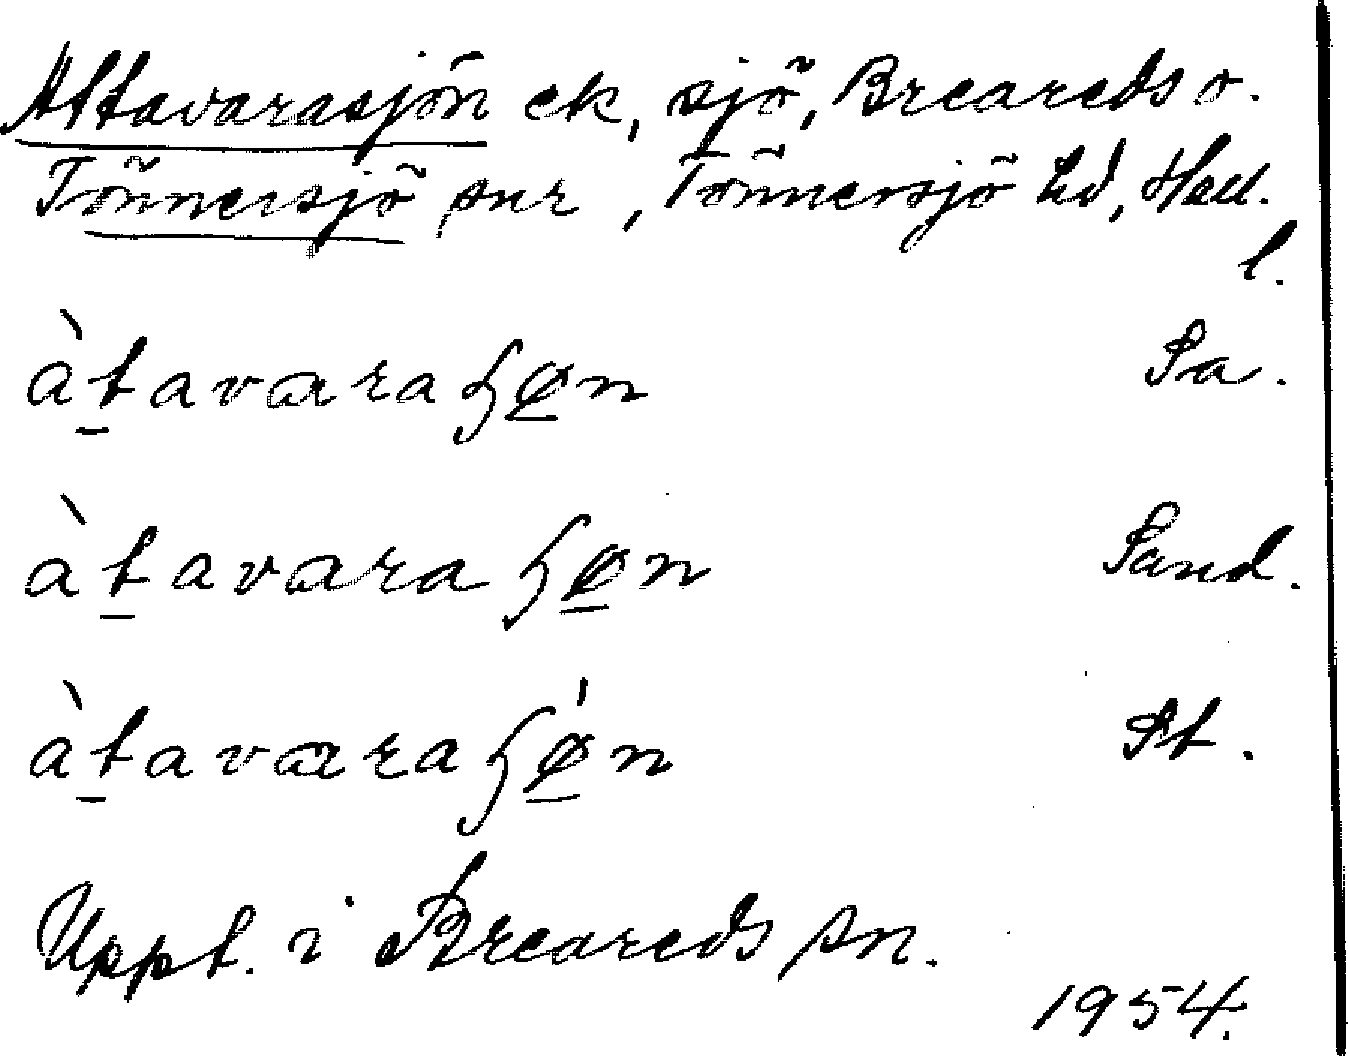 Attavarasjön ek, sjö, Breareds o.
Tönnersjö snr, Tönnersjö hd, Hall.
l.
àt̲avaraɧø̲n Sa.
àt̲avaraɧø̲n Sand.
àt̲avaraɧǿ̲n St.
Uppt. i Breareds sn.
1954.